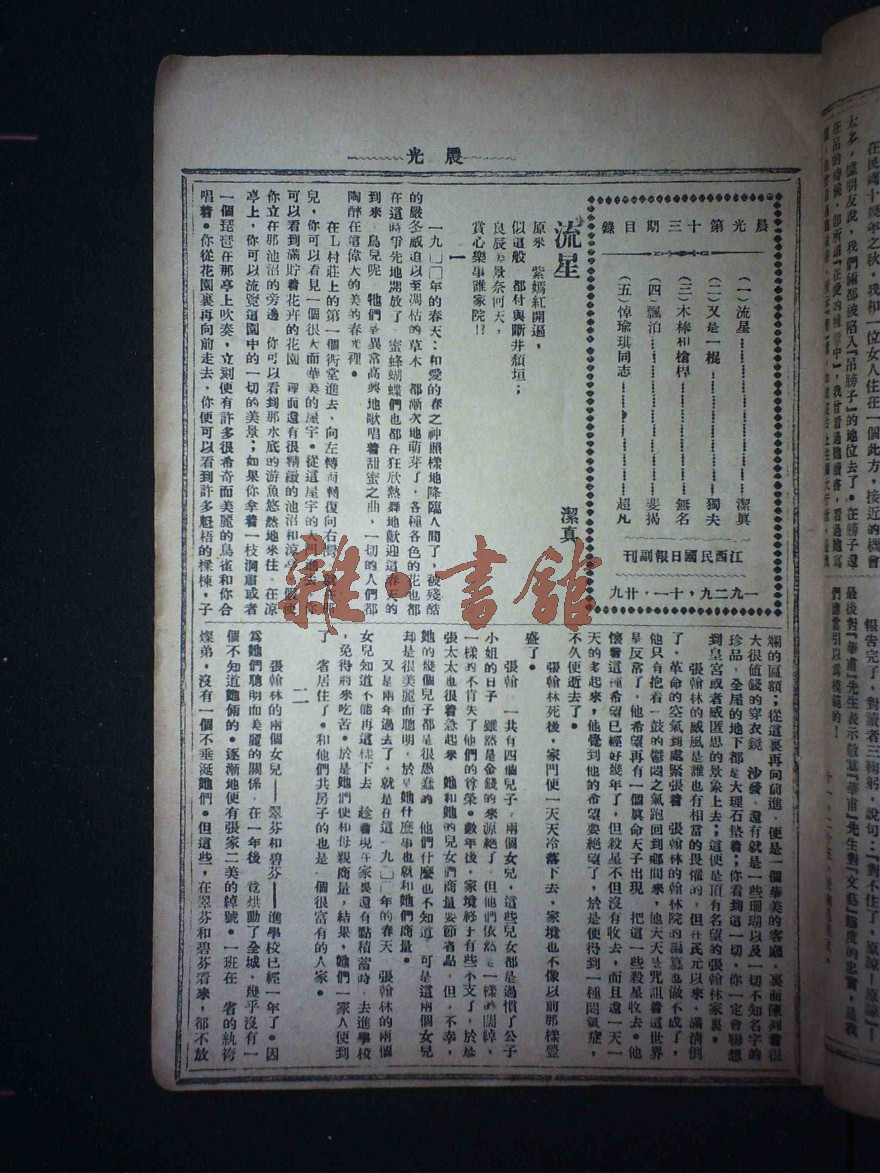 晨光
晨光第十三期目錄
(一)流星……潔真
(二)又是一棍……獨夫
(三)木棒和槍桿……無名
(四)飄泊……斐揭
(五)悼瑜琪同志……超凡
江西民國日報副刊
一九二九,十一.廿九
流星
潔真
原來 紫嫣紅開遍,
似這般 都付與斷井頹垣;
良辰美景奈何天,
賞心樂事誰家院!?
一
一九〇〇年的春天:和愛的春之神照樣地降臨人間了,被殘酷
的嚴冬威迫以至凋枯的草木 都漸次地萌芽了,各種各色的花也都
在這時爭先地開放了 蜜蜂蝴蝶們也都在狂欣熱舞地歡迎這春天的
到來 鳥兒呢 牠們是異常高興地歌唱着甜蜜之曲,一切的人們都
陶醉在這偉大的美的春光裡。
在工村莊上的第一個衖堂進去,向左轉再轉復向右灣
兒,你可以看見一個很大而華美的屋宇。從這屋宇的大門進去 你
可以看到滿貯着花卉的花園 裡面還有很精緻的池沼和涼亭 假使
你立在那池沼的旁邊 你可以看到那水底的游魚悠然地來往 在涼
亭上,你可以流覽這園中的一切的美景;如果你拿着一枝洞肅或者
一個琵琶在那亭上吹奏,立刻便有許多很希奇而美麗的鳥雀和你合
唱着。你從花園裏再向前走去、你便可以看到許多魁梧的樑棟,子
爛的匾額;從這裏再向前進,便是一個華美的客廳,裏面陳列着很
大很值錢的穿衣鏡 沙發 還有就是一些珊瑚以及一切不知名字的
珍品,全屋的地下都是大理石墊着;你看到這一切,你一定會聯想
到皇宮或者威匿思的景象上去;這便是頂有名望的張翰林家裏。
張翰林的威風是誰也有相當的畏懼的,但在民元以來,滿清倒
了,革命的空氣到處緊張着 張翰林的翰林院的編纂也做不成了,
他只有抱着一鼓的鬱悶之氣跑回到鄉間來,他天天是咒詛着這世界
是反常了,他希望再有一個眞命天子出現 把這一些殺星收去。他
懷着這種希望已經好幾年了,但殺星不但沒有收去,而且還一天一
天的多起來,他覺到他的希望要絕望了,於是便得到一種悶氣症,
不久便逝去了。
張翰林死後,家門便一天天冷落下去,家境也不像以前那樣豐
盛了。
張翰 一共有四個兒子 兩個女兒,這些兒女都是過慣了公子
小姐的日子 雖然是金錢的來源絕了 但他們依然是一樣的闊綽,
一樣的不肯失了他們的尊榮。數年後,家境終于有些不支了,於是
張太太也很着急起來 她和她的兒女們商量要節省點,但,不幸,
她的幾個兒子都是很愚蠢的 他們什麼也不知道 可是這兩個女兒
却是很美麗而聰明,於是她什麼事也就和她們商量。
又是兩年過去了,就是在這一九〇〇年的春天 張翰林的兩個
女兒知道不能再這樣下去 趁着現在家裏還有點積蓄時,去進學校
,免得將來吃苦。於是她們便和母親商量,結果,她們一家人便到
了 省居住了。和他們共房子的也是一個很富有的人家。
二
張翰林的兩個女兒——翠芬和碧芬——進學校已經一年了。因
為她們聰明而美麗的關係 在一年後 竟烘動了全城,幾乎沒有一
個不知道她倆的。逐漸地便有張家二美的綽號。一班在 省的紈袴
燦弟,沒有一個不垂涎她們。但這些,在翠芬和碧芬看來,都不放